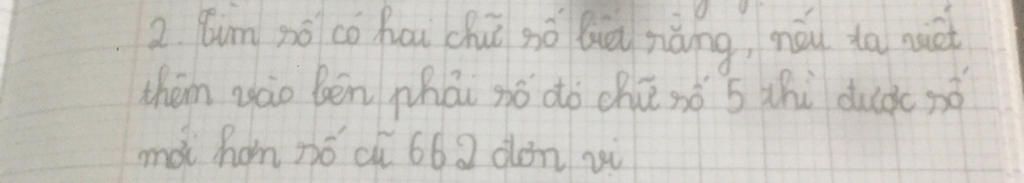 2. Tìm số có hai chữ số biết rằng, nếu ta viết
thêm vào bên phải số đó chữ số 5 thì được số
mới hơn số cũ 662 đơn vị